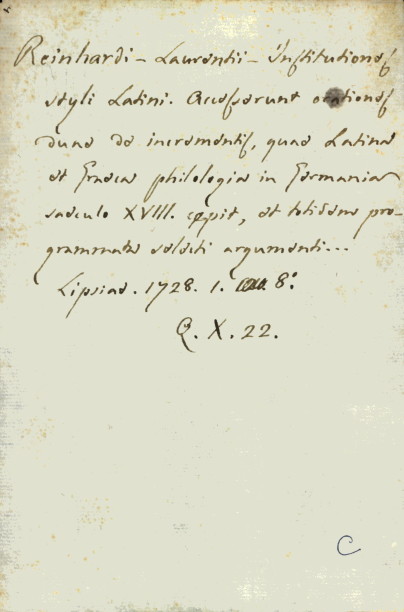 Reinhardi - Laurentii - Institutiones
styli Latini. Accesserunt orationes
duae de incrementis, quae Latina
et Graeca philologia in Germania
saeculo XVIII. cepit, et totidem pro-
grammata selecti argumenti...
Lipsiae. 1728. 1. 8°
Q. X. 22.
C